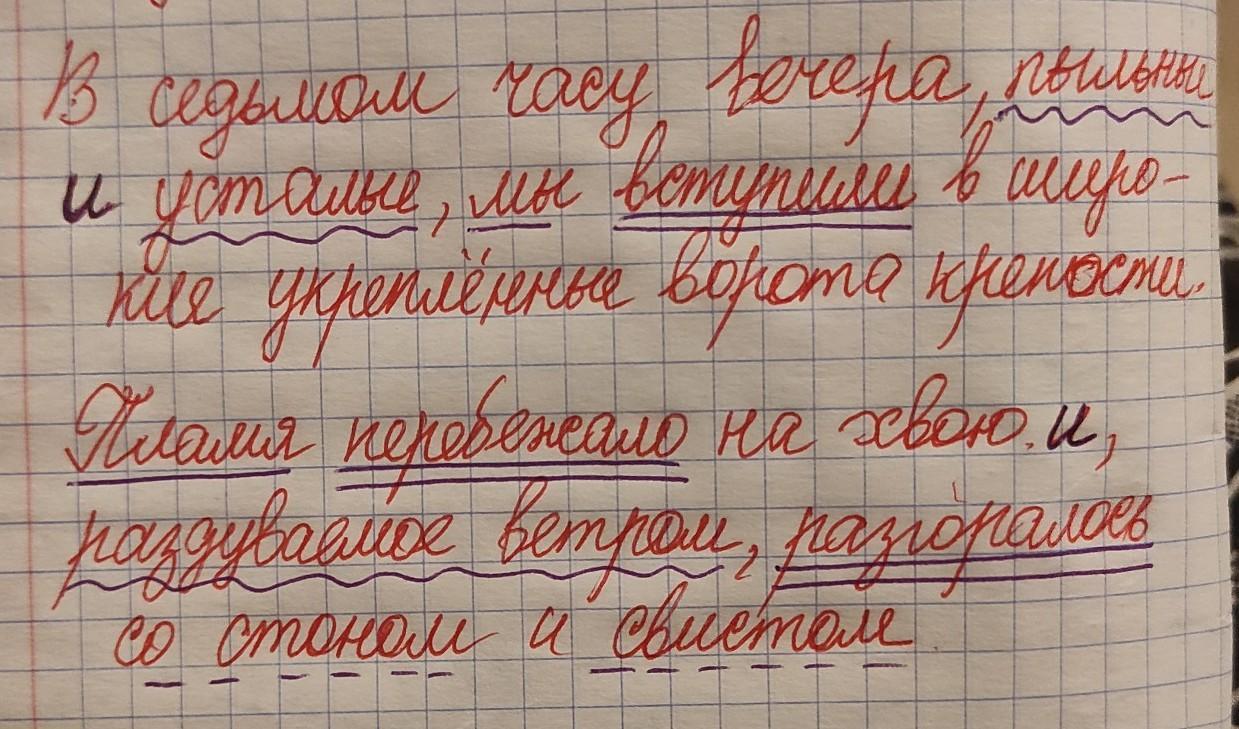 В седьмом часу вечера, пыльные
и усталые, мы вступили в широ-
кие укреплённые ворота крепости.
Пламя перебежало на хвою и,
раздуваемое ветром, разгоралось
со стоном и свистом